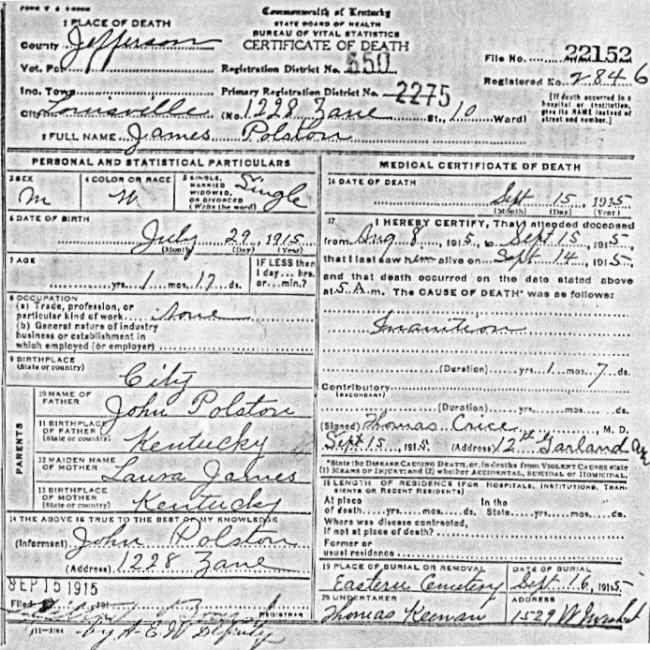 Commonwealth of Kentucky
STATE BOARD OF HEALTH
BUREAU OF VITAL STATISTICS
CERTIFICATE OF DEATH
1 PLACE OF DEATH
County Jefferson
Vot. Pct.
Inc. Town
City Louisville
Registration District No. 550
Primary Registration District No. 2275
(No. 1228 Zane St., 10 Ward)
File No. 22152
Registered No. 2846
[If death occurred in a hospital or institution, give its NAME instead of street and number.]
2 FULL NAME James Polston
PERSONAL AND STATISTICAL PARTICULARS
3 SEX
M
4 COLOR OR RACE
W
5 SINGLE, MARRIED, WIDOWED, OR DIVORCED (Write the word)
Single
6 DATE OF BIRTH
July 29, 1915
(Month) (Day) (Year)
7 AGE
yrs. 1 mos. 17 ds.
IF LESS than 1 day... hrs. or... min.?
8 OCCUPATION
(a) Trade, profession, or particular kind of work None
(b) General nature of industry business or establishment in which employed (or employer)
9 BIRTHPLACE
(State or country) City
PARENTS
10 NAME OF FATHER John Polston
11 BIRTHPLACE OF FATHER (State or country) Kentucky
12 MAIDEN NAME OF MOTHER Laura James
13 BIRTHPLACE OF MOTHER (State or country) Kentucky
14 THE ABOVE IS TRUE TO THE BEST OF MY KNOWLEDGE
(Informant) John Polston
(Address) 1228 Zane
SEP 15 1915
Filed
REGISTRAR
by A.E.W Deputy
MEDICAL CERTIFICATE OF DEATH
16 DATE OF DEATH
Sept 15, 1915
(Month) (Day) (Year)
17 I HEREBY CERTIFY, That I attended deceased
from Aug 8, 1915, to Sept 15, 1915
that I last saw him alive on Sept 14, 1915,
and that death occurred on the date stated above
at 5 A.m. The CAUSE OF DEATH* was as follows:
Inanition
(Duration) yrs. 1 mos. 7 ds.
Contributory
(SECONDARY)
(Duration) yrs. mos. ds.
(Signed) Thomas Crice, M. D.
Sept 15, 1915 (Address) 12th Garland Av
*State the DISEASE CAUSING DEATH, or, in deaths from VIOLENT CAUSES state (1) MEANS OF INJURY; and (2) whether ACCIDENTAL, SUICIDAL or HOMICIDAL.
18 LENGTH OF RESIDENCE (FOR HOSPITALS, INSTITUTIONS, TRANSIENTS OR RECENT RESIDENTS)
At place of death yrs. mos. ds. In the State yrs. mos. ds.
Where was disease contracted, if not at place of death?
Former or usual residence
19 PLACE OF BURIAL OR REMOVAL
Eastern Cemetery
DATE OF BURIAL
Sept 16, 1915
20 UNDERTAKER
Thomas Keenan
ADDRESS
1529 W